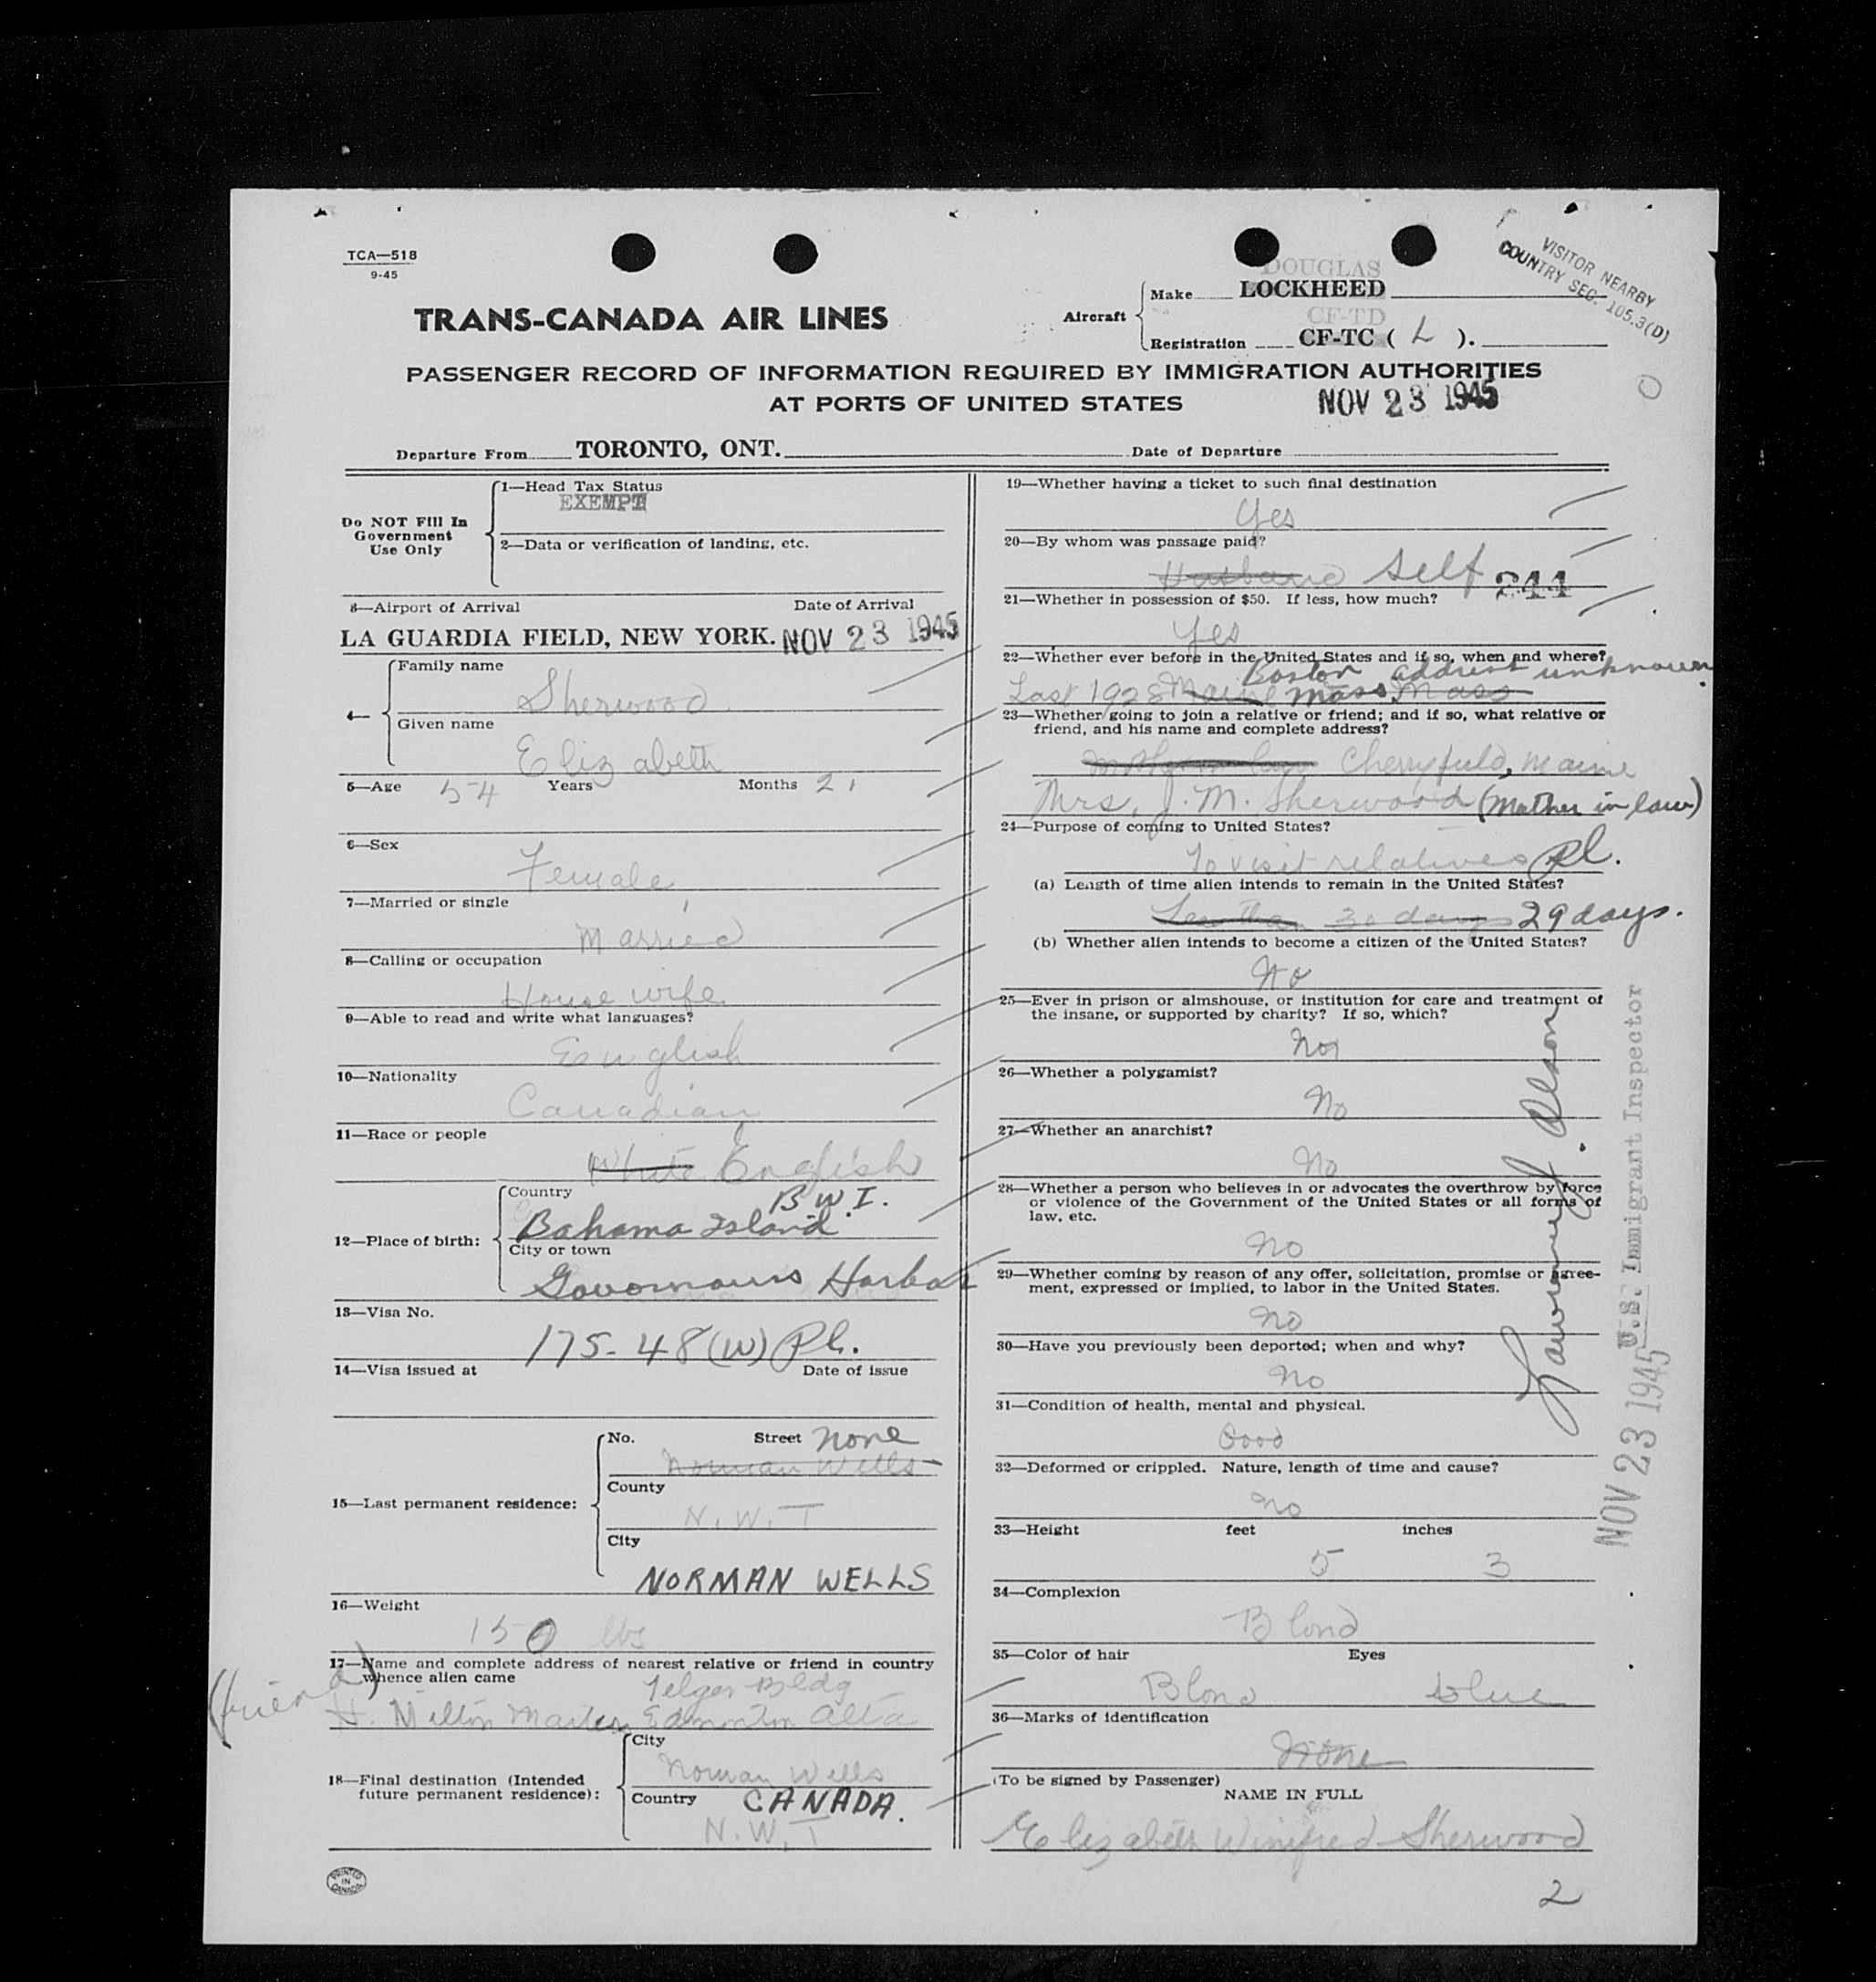 TCA—518
9-45
VISITOR NEARBY
COUNTRY SEC. 105.3(D)
TRANS-CANADA AIR LINES
DOUGLAS
Aircraft Make LOCKHEED
CF-TD
Registration CF-TC ( L ).
PASSENGER RECORD OF INFORMATION REQUIRED BY IMMIGRATION AUTHORITIES
AT PORTS OF UNITED STATES
NOV 23 1945
Departure From TORONTO, ONT. Date of Departure
Do NOT Fill In
Government
Use Only
1—Head Tax Status
EXEMPT
2—Data or verification of landing, etc.
3—Airport of Arrival Date of Arrival
LA GUARDIA FIELD, NEW YORK. NOV 23 1945
4—
Family name
Sherwood
Given name
Elizabeth
5—Age 54 Years Months 2
6—Sex
Female
7—Married or single
Married
8—Calling or occupation
House wife
9—Able to read and write what languages?
English
10—Nationality
Canadian
11—Race or people
White English
12—Place of birth:
Country
B.W.I.
Bahama Island
City or town
Governours Harbor
13—Visa No.
175-48(W) Pl.
14—Visa issued at Date of issue
15—Last permanent residence:
No. Street none
Norman Wells
County
N.W.T
City
NORMAN WELLS
16—Weight
150 lbs
17—Name and complete address of nearest relative or friend in country
whence alien came
(friend)
Bldg
H. Milton Martin Edmonton Alta
18—Final destination (Intended
future permanent residence):
City
Norman Wells
Country CANADA.
N.W.T
PRINTED
IN
CANADA
19—Whether having a ticket to such final destination
Yes
20—By whom was passage paid?
Husband Self 244
21—Whether in possession of $50. If less, how much?
Yes
22—Whether ever before in the United States and if so, when and where?
Boston address unknown
Last 1928 Maine Mass Mass
23—Whether going to join a relative or friend; and if so, what relative or
friend, and his name and complete address?
Mother in law Cherryfield, Maine
Mrs. J. M. Sherwood (Mother in law)
24—Purpose of coming to United States?
To visit relatives Pl.
(a) Length of time alien intends to remain in the United States?
Less than 30 days 29 days.
(b) Whether alien intends to become a citizen of the United States?
No
25—Ever in prison or almshouse, or institution for care and treatment of
the insane, or supported by charity? If so, which?
No
26—Whether a polygamist?
No
27—Whether an anarchist?
No
28—Whether a person who believes in or advocates the overthrow by force
or violence of the Government of the United States or all forms of
law, etc.
No
29—Whether coming by reason of any offer, solicitation, promise or agree-
ment, expressed or implied, to labor in the United States.
No
30—Have you previously been deported; when and why?
No
31—Condition of health, mental and physical.
Good
32—Deformed or crippled. Nature, length of time and cause?
No
33—Height feet inches
5 3
34—Complexion
Blond
35—Color of hair Eyes
Blond blue
36—Marks of identification
None
(To be signed by Passenger)
NAME IN FULL
Elizabeth Winifred Sherwood
2
U.S. Immigrant Inspector
NOV 23 1945